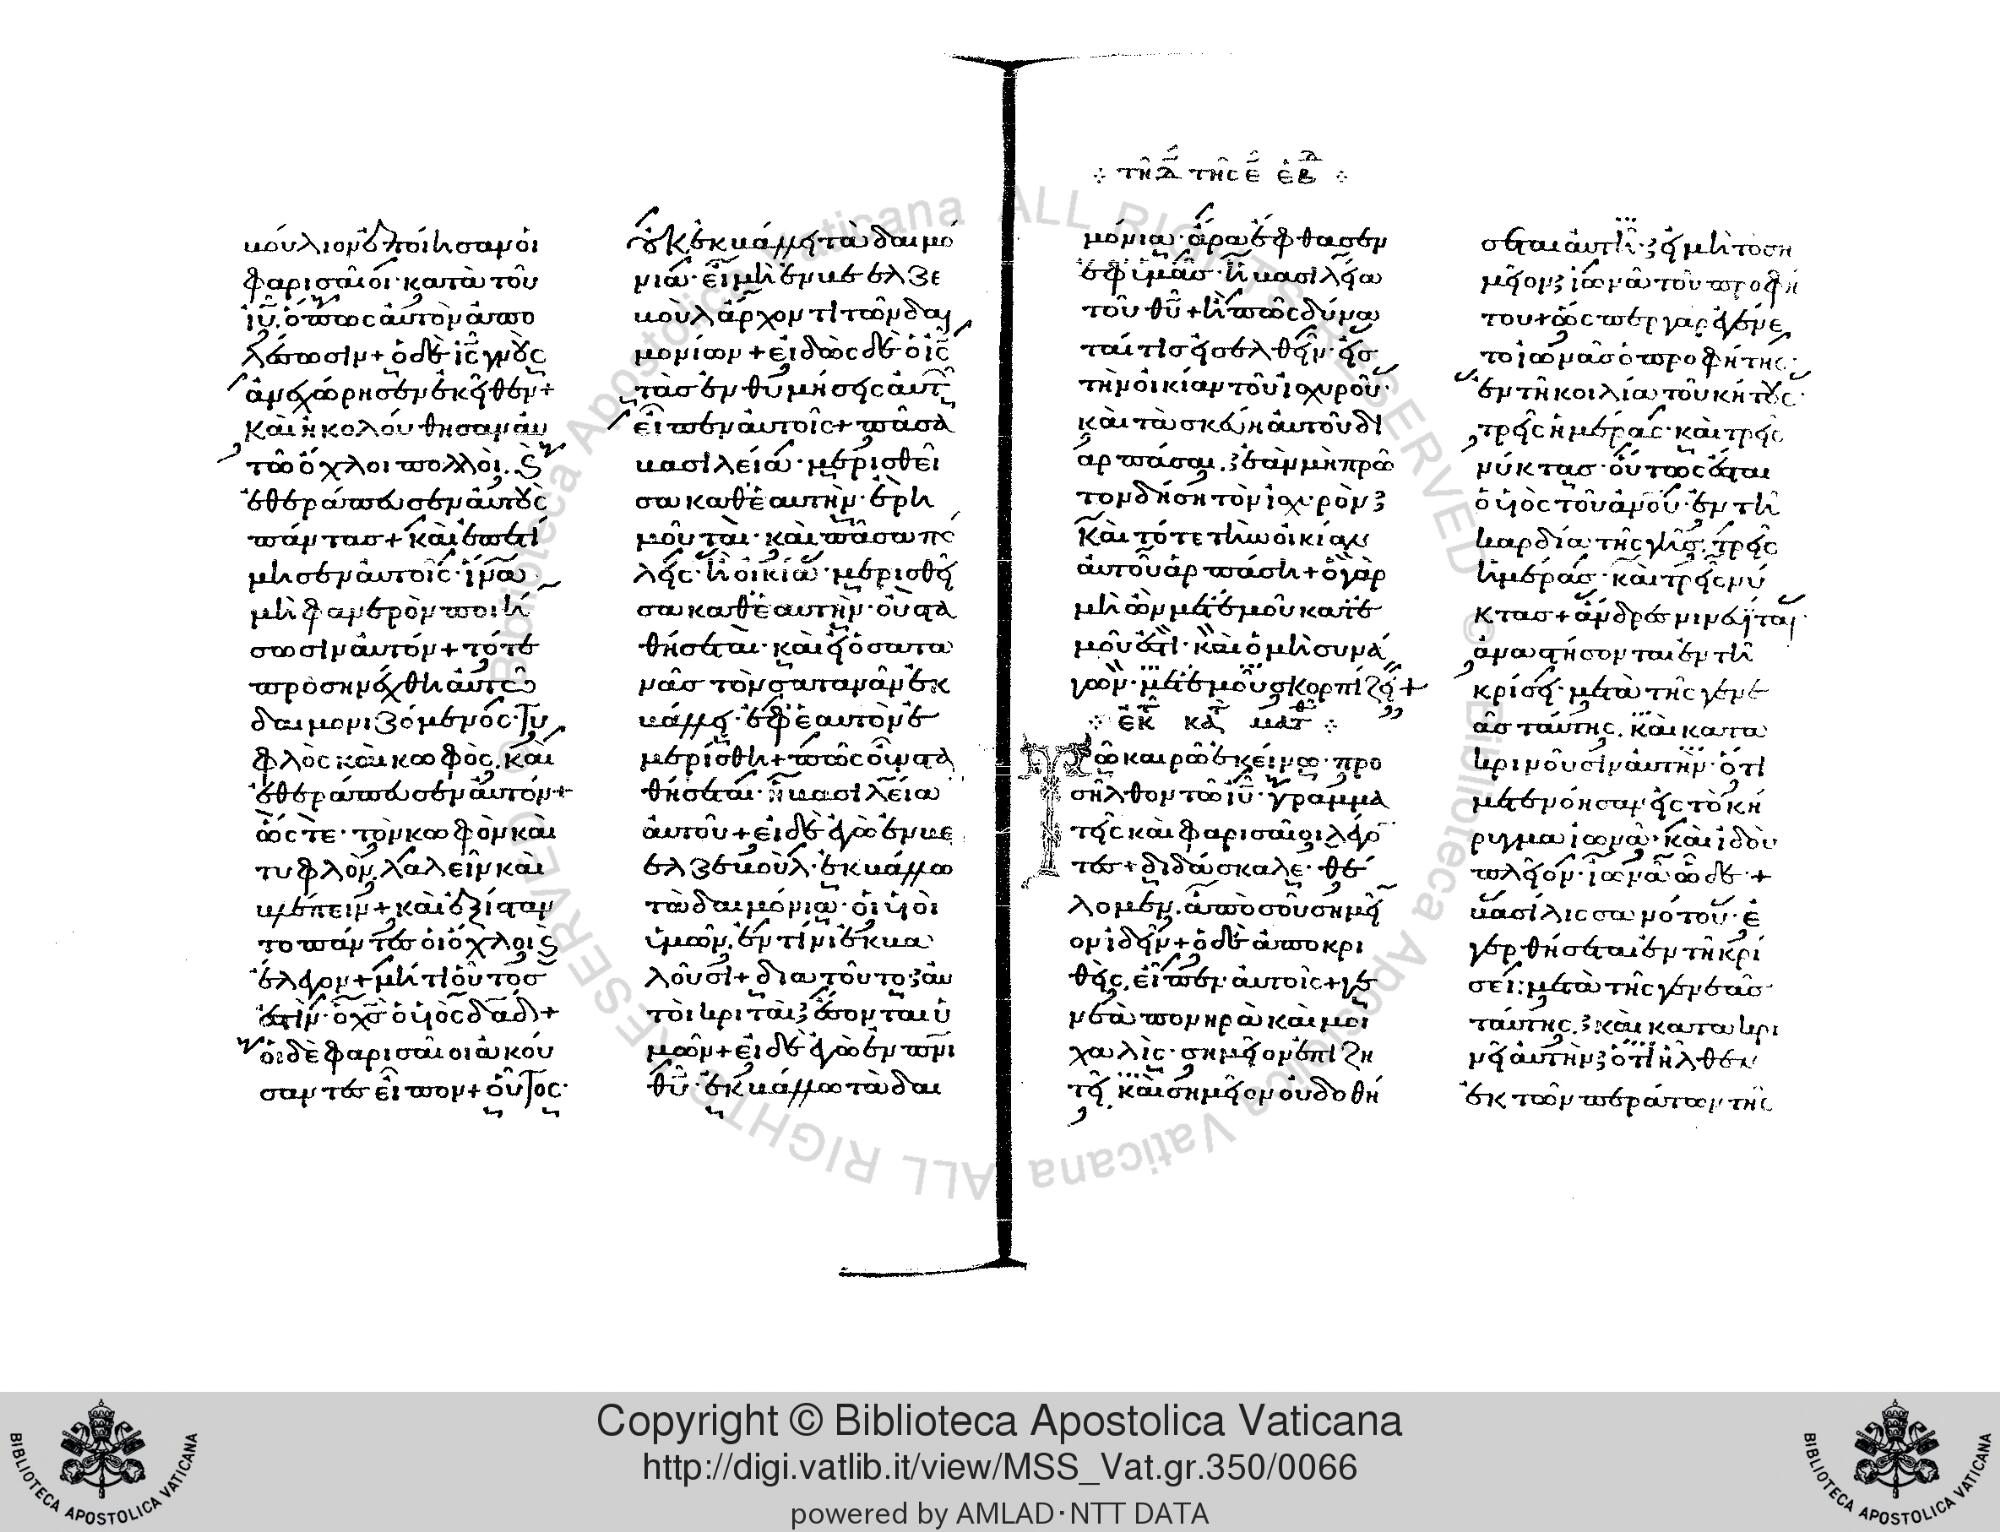 μούλιον ἐποίησαν οἱ
φαρισαῖοι· κατὰ τοῦ
ἰῦ, ὅπως αὐτὸν ἀπο
λέσωσιν + ὁ δὲ ἰς γνοὺς
ἀνεχώρησεν ἐκεῖθεν +
Καὶ ἠκολούθησαν αὐ
τῶ ὄχλοι πολλοὶ. καὶ
ἐθεράπευσεν αὐτοὺς
πάντας + καὶ ἐπετί
μησεν αὐτοῖς· ἵνα
μὴ φανερὸν ποιή
σωσιν αὐτόν + τότε
προσηνέχθη αὐτῶ
δαιμονιζόμενος· τυ
φλὸς καὶ κωφὸς. καὶ
ἐθεράπευσεν αὐτόν +
ὥστε· τὸν κωφὸν καὶ
τυφλὸν, λαλεῖν καὶ
βλέπειν + καὶ ἐξίσταν
το πάντες οἱ ὄχλοι καὶ
ἔλεγον + μήτι οὗτος
ἐστὶν· ὁ χς ὁ υἱὸς δαδ +
οἱ δὲ φαρισαῖοι ἀκού
σαντες εἶπον + οὗτος·
οὐκ ἐκβάλλει τὰ δαιμό
νια· εἰ μὴ ἐν βεελζε
βοὺλ ἄρχοντι τῶν δαι
μονίων + εἰδὼς δὲ ὁ ἰς
τὰς ἐνθυμήσεις αὐτῶν
εἶπεν αὐτοῖς + πᾶσα
βασιλεία· μερισθεῖ
σα καθ' ἑαυτὴν· ἐρη
μοῦται· καὶ πᾶσα πό
λις· ἢ οἰκία· μερισθεῖ
σα καθ' ἑαυτὴν· οὐ στα
θήσεται· καὶ εἰ ὁ σατα
νᾶς τὸν σατανᾶν ἐκ
βάλλει· ἐφ' ἑαυτὸν ἐ
μερίσθη + πῶς οὖν στα
θήσεται· ἡ βασιλεία
αὐτοῦ + εἰ δὲ ἐγὼ ἐν βε
ελζεβοὺλ· ἐκβάλλω
τὰ δαιμόνια· οἱ υἱοὶ
ὑμῶν. ἐν τίνι ἐκβα
λοῦσι + διὰ τοῦτο αὐ
τοὶ κριταὶ ἔσονται ὑ
μῶν + εἰ δὲ ἐγὼ ἐν πνι
θῦ· ἐκβάλλω τὰ δαι
τῆ δ τῆς ε ἑβδ
μόνια· ἄρα ἔφθασεν
ἐφ' ὑμᾶς· ἡ βασιλεία
τοῦ θῦ + ἢ πῶς δύνα
ταί τις εἰσελθεῖν· εἰς
τὴν οἰκίαν τοῦ ἰσχυροῦ·
καὶ τὰ σκεύη αὐτοῦ δι
αρπάσαι. ἐὰν μὴ πρῶ
τον δήση τὸν ἰσχυρὸν
Καὶ τότε τὴν οἰκίαν
αὐτοῦ ἁρπάση + ὁ γὰρ
μὴ ὢν μετ' ἐμοῦ κατ' ἐ
μοῦ ἐστὶ· καὶ ὁ μὴ συνά
γων· μετ' ἐμοῦ σκορπίζει +
ἐκ κατὰ ματθ
Τῶ καιρῶ ἐκείνω· προ
σῆλθον τῶ ἰῦ· γραμμα
τεῖς καὶ φαρισαῖοι λέγον
τες + διδάσκαλε· θέ
λομεν. ἀπὸ σοῦ σημεῖ
ον ἰδεῖν + ὁ δὲ ἀποκρι
θεὶς, εἶπεν αὐτοῖς + γε
νεὰ πονηρὰ καὶ μοι
χαλὶς· σημεῖον ἐπιζη
τεῖ. καὶ σημεῖον οὐ δοθή
σεται αὐτῆ· εἰ μὴ τὸ ση
μεῖον ἰωνᾶ τοῦ προφή
του + ὥσπερ γὰρ ἐγένε
το ἰωνᾶς ὁ προφήτης·
ἐν τῆ κοιλία τοῦ κήτους·
τρεῖς ἡμέρας· καὶ τρεῖς
νύκτας· οὕτως ἔσται
ὁ υἱὸς τοῦ ἀνου· ἐν τῆ
καρδία τῆς γῆς. τρεῖς
ἡμέρας· καὶ τρεῖς νύ
κτας + ἄνδρες νινευῖται
ἀναστήσονται ἐν τῆ
κρίσει· μετὰ τῆς γενε
ᾶς ταύτης. καὶ κατα
κρινοῦσιν αὐτὴν· ὅτι
μετενόησαν εἰς τὸ κή
ρυγμα ἰωνᾶ· καὶ ἰδοὺ
πλεῖον· ἰωνᾶ ὧδε· +
βασίλισσα νότου· ἐ
γερθήσεται ἐν τῆ κρί
σει· μετὰ τῆς γενεᾶς
ταύτης. καὶ κατακρι
νεῖ αὐτὴν ὅτι ἦλθεν
ἐκ τῶν περάτων τῆς
Copyright © Biblioteca Apostolica Vaticana
http://digi.vatlib.it/view/MSS_Vat.gr.350/0066
powered by AMLAD·NTT DATA
BIBLIOTECA APOSTOLICA VATICANA
BIBLIOTECA APOSTOLICA VATICANA